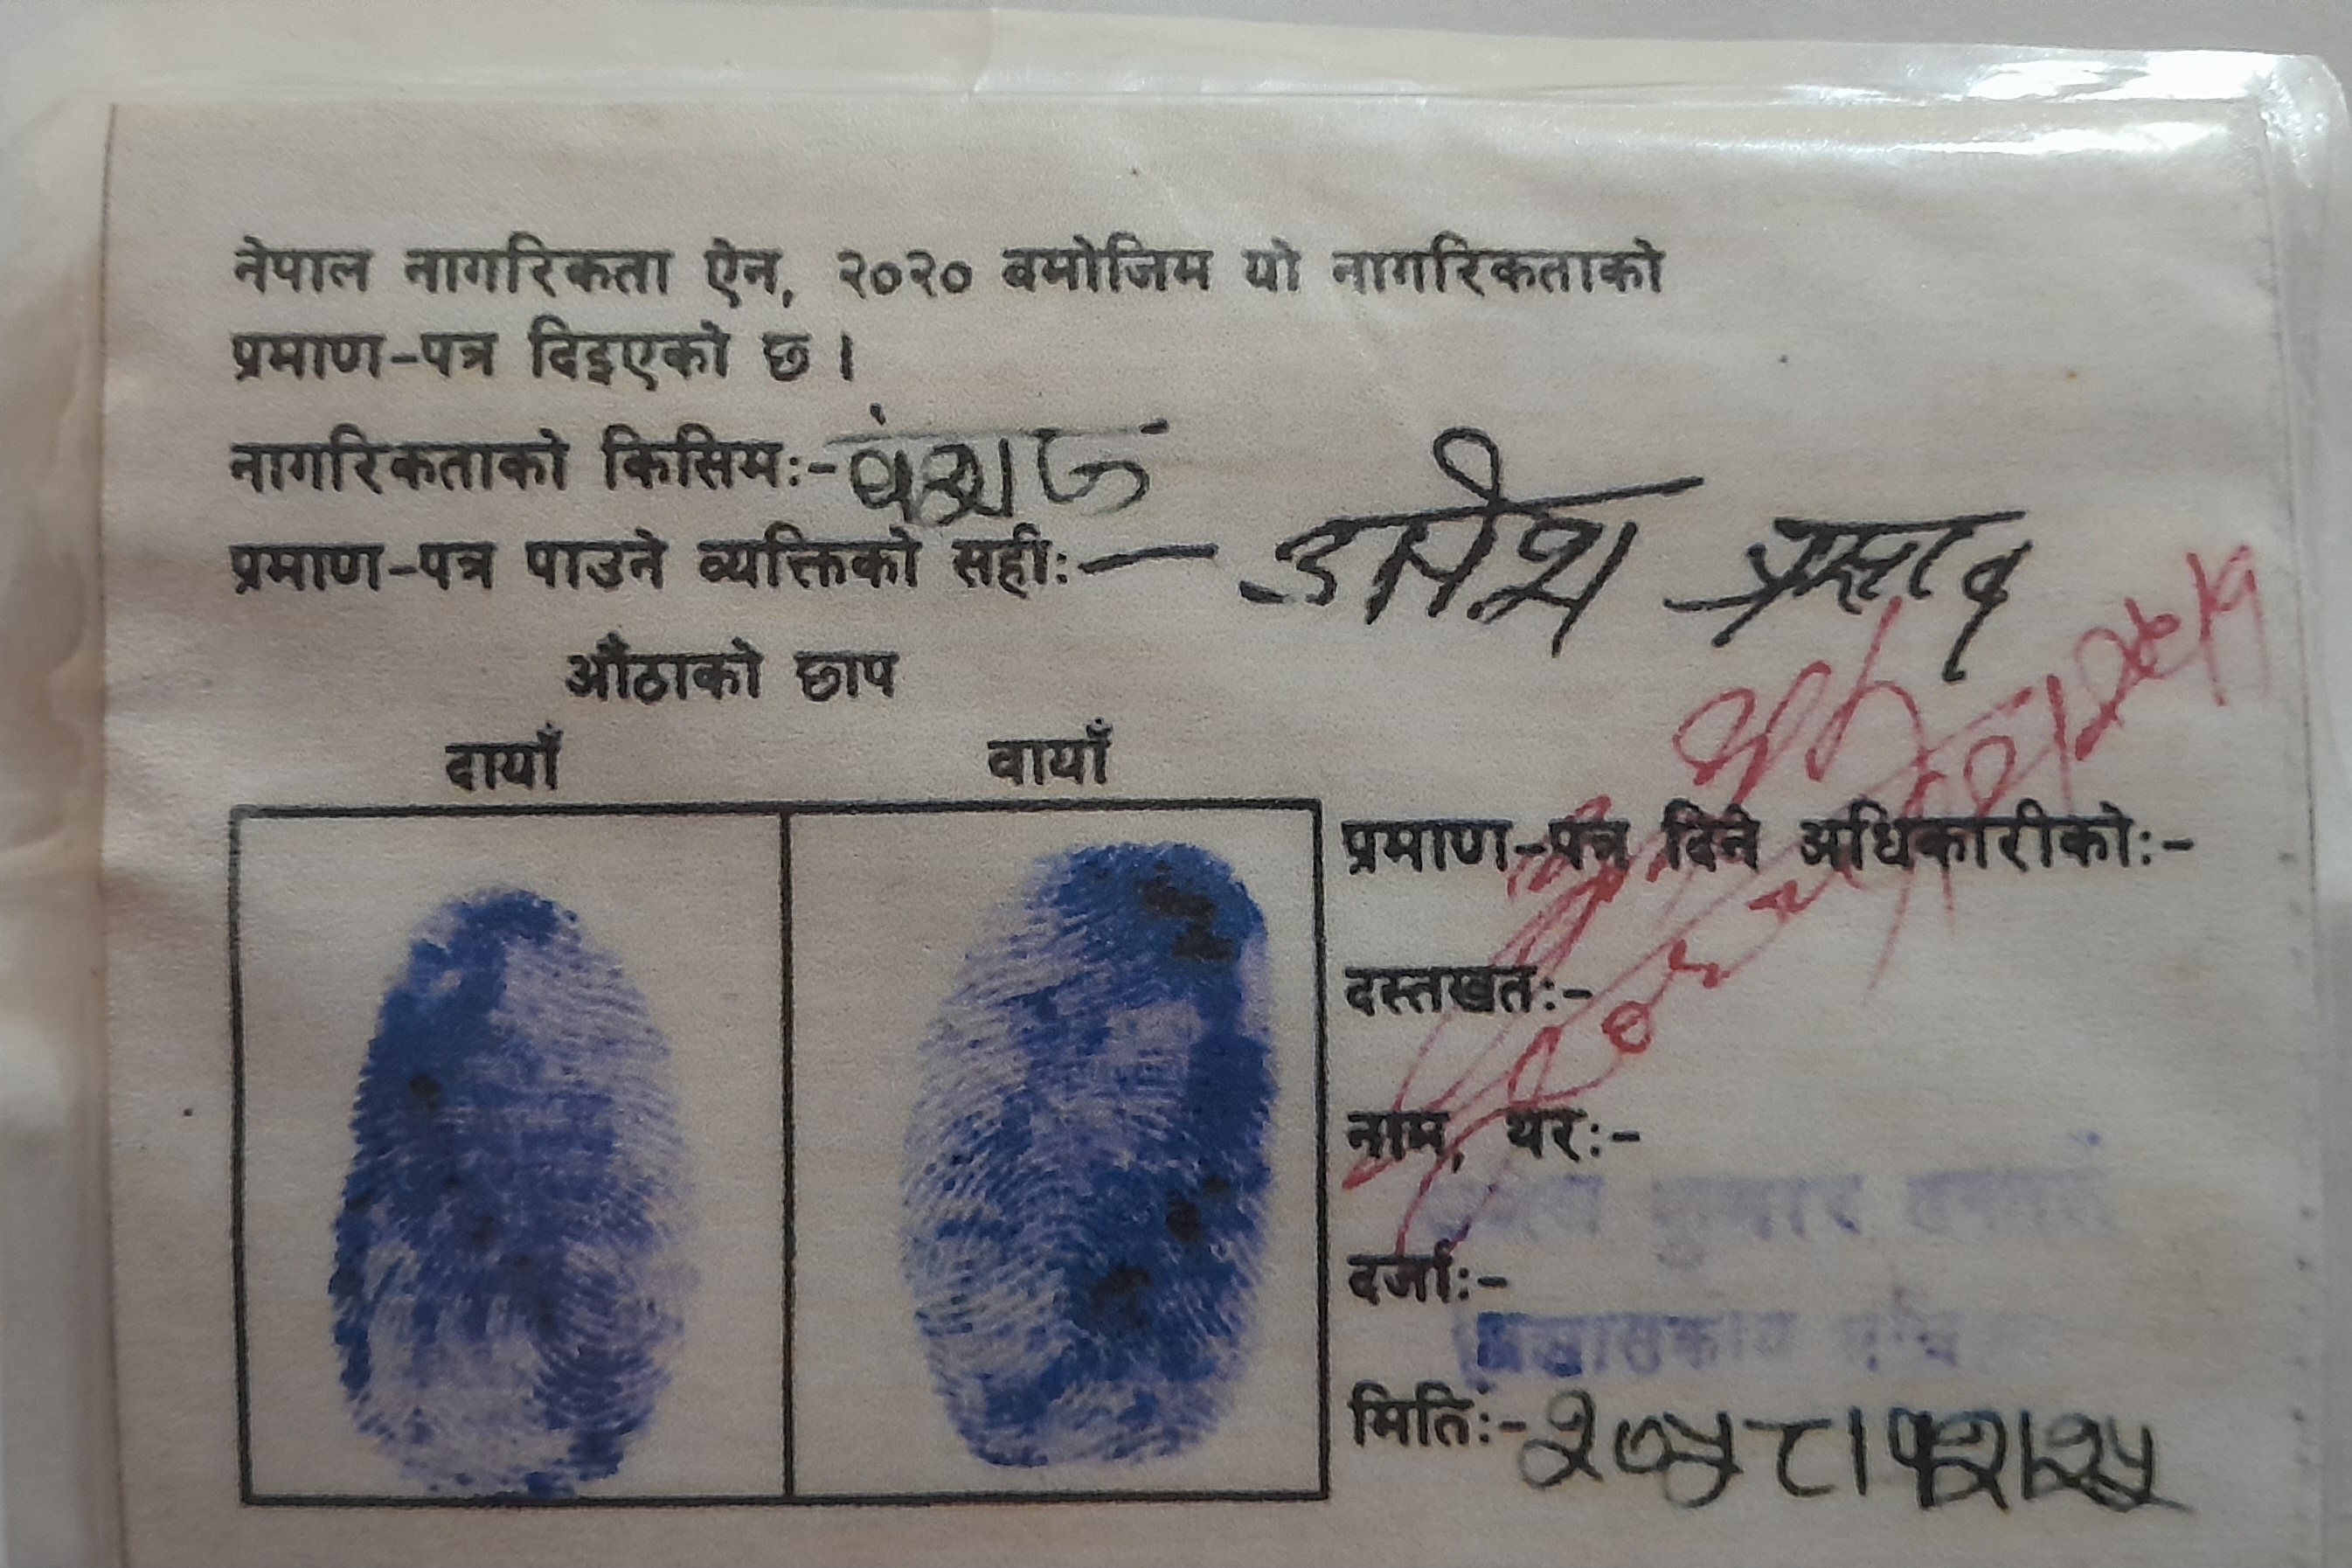 नेपाल नागरिकता ऐन, २०२० बमोजिम यो नागरिकताको
प्रमाण-पत्र दिइएको छ ।
नागरिकताको किसिमः- वंशज
प्रमाण-पत्र पाउने व्यक्तिको सहीः- उमेश प्रसाद
औंठाको छाप
दायाँ वायाँ
प्रमाण-पत्र दिने अधिकारीकोः-
दस्तखतः-
नाम, थरः-
कुमार
दर्जाः-
मितिः- २०५८।१२।२५